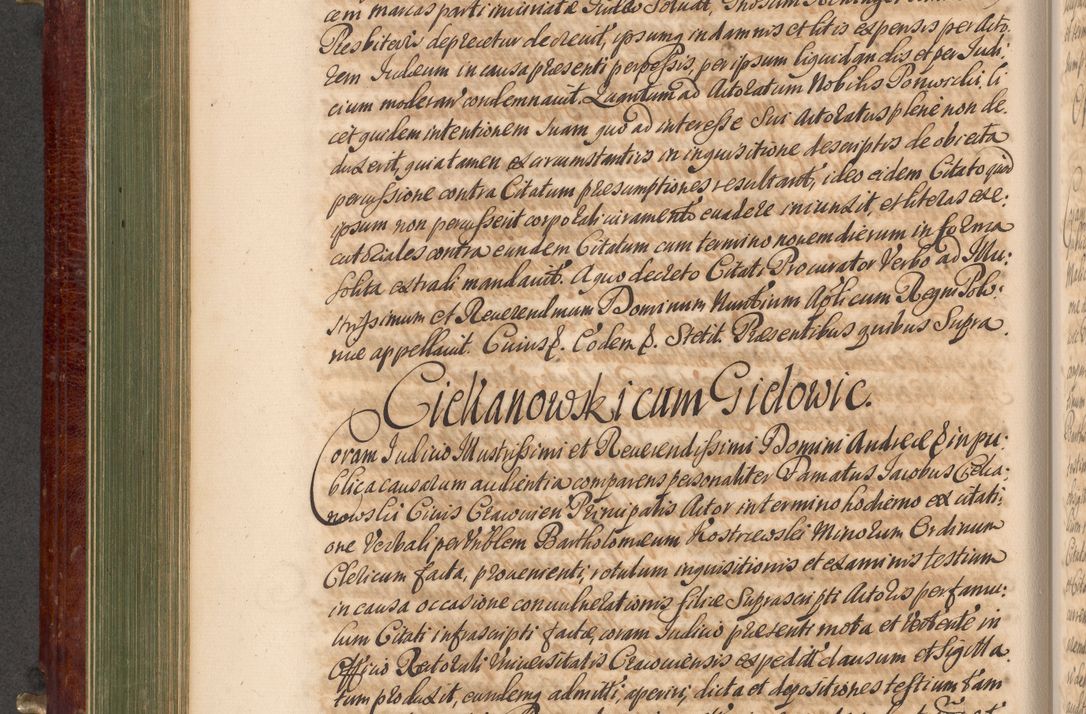 cem marcas parti iniuriatæ Iudæo Soluat,
Presbiteris deprecetur decreuit, ipsumq́ in damnis et litis expensis per Acto:
rem Iudæum in causa præsenti perpessis, per ipsum liquidandis et per Iudi:
cium moderan' condemnauit. Quantum ad Actoratum Nobilis Ponworski li:
cet quidem intentionem suam quo ad interesse Sui Actoratus plene non de:
duxerit, quia tamen ex circumstantiis in inquisitione descriptis de obiecta
percussione contra Citatum præsumptiones resultant, ideo eidem Citato quod
ipsum non percusserit corporali iuramento euadere iniunxit, et literas exe:
cutoriales contra eundem Citatum cum termino nouem dierum in forma
solita extradi mandauit. A quo decreto Citati Procurator Verbo ad Illu:
strissimum et Reuerendmum Dominum Nuntium Aplicum Regni Polo:
niæ appellauit. Cuius &. Eodem &. Stetit. Præsentibus quibus Supra.
Ciekanowski cum Gielowic.
Coram Iudicio Illustrissimi et Reuerendissimi Domini Andreæ & in pu:
blica causarum audientia comparens personaliter Famatus Iacobus Cieka:
nowski Ciuis Cracouien Principalis Actor in termino hodierno ex citati:
one Verbali per Vnblem Bartholomæum Kostrzewski Minorum Ordinum
Clericum facta, proueniente, rotulum inquisitionis et examinis testium
in causa occasione conuulnerationis filiæ Suprascripti Actoris per famu:
lum Citati infrascripti factæ, coram Iudicio præsenti mota et vertente in
Officio Rectorali Vniuersitatis Cracouiensis expedit' clausum et Sigilla:
tum produxit, eundemq́ admitti, aperiri, dicta et depositiones testium tam